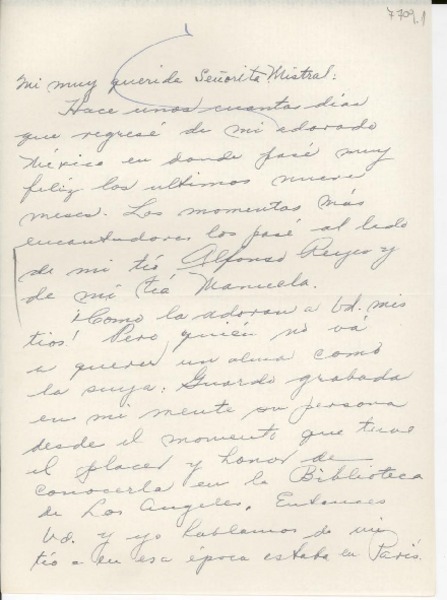 7709.1
Mi muy querida Señorita Mistral:
Hace unos cuantos días
que regresé de mi adorado
México en donde pasé muy
feliz los ultimos nueve
meses. Los momentos más
encantadores los pasé al lado
de mi tío Alfonso Reyes y
de mi tía Manuela.
¡Como la adoran a Ud. mis
tios! Pero quién no vá
a querer un alma como
la suya. Guardo grabada
en mi mente su persona
desde el momento que tuve
el placer y honor de
conocerla en la Biblioteca
de Los Angeles. Entonces
Ud. y yo hablamos de mi
tío q en esa época estaba en Paris.